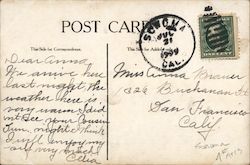 POST CARD
This Side for Correspondence.
This Side for Address.
SONOMA
JUL
21
1909
CAL.
Dear Anna
We arrive here
last night. the
weather here is
very warm. I did
not see your cousin
I will enjoy my
Celia
Miss Anna
1326 Buchanan St
San Francisco
Calif